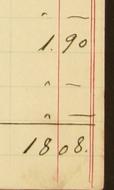 " —
1.90
" —
" —
1808.